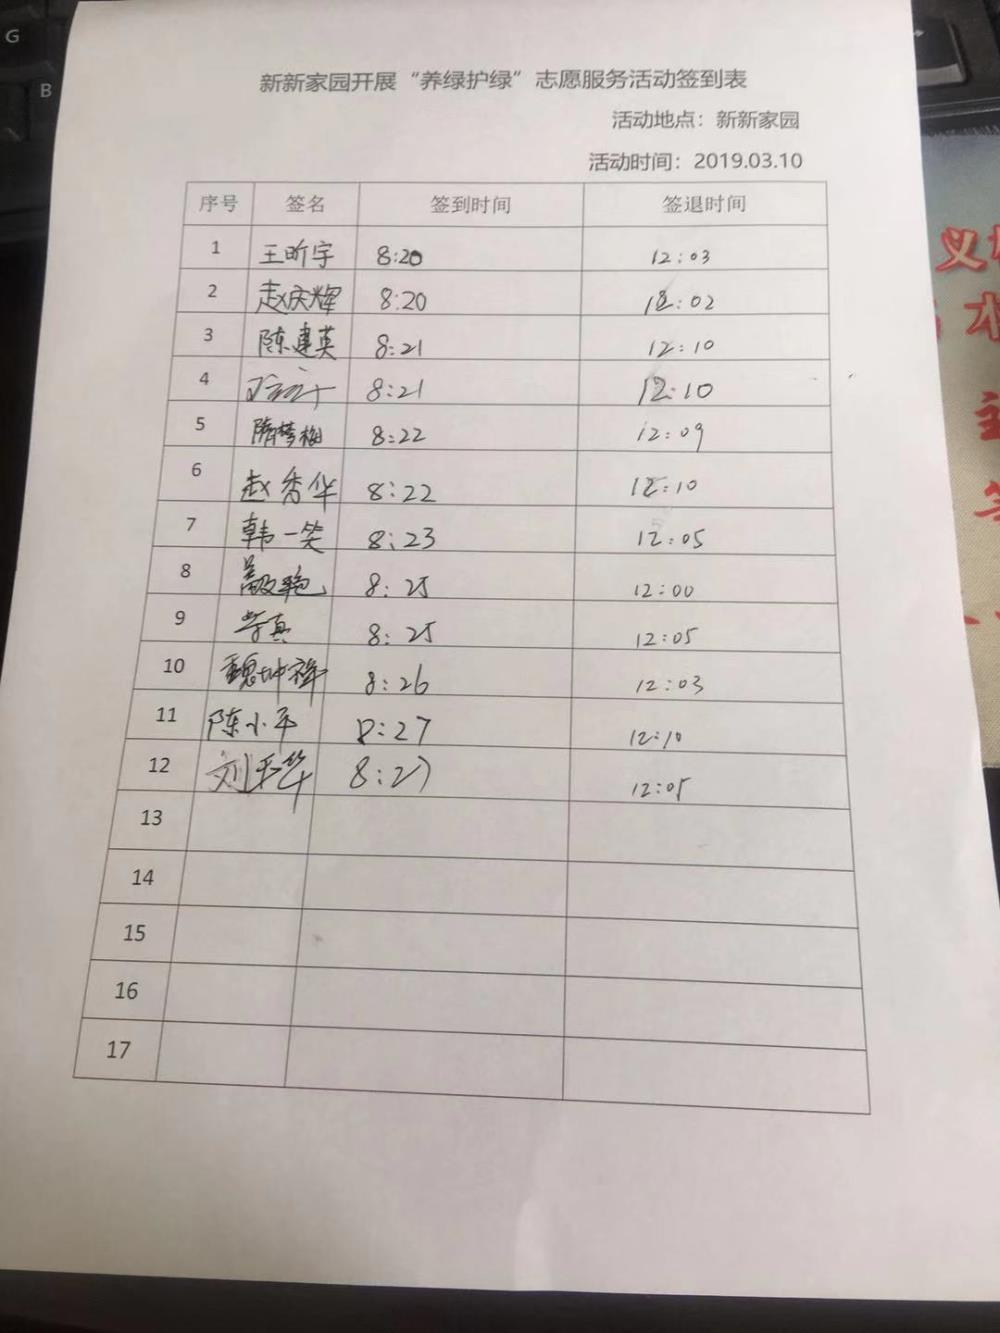 新新家园开展“养绿护绿”志愿服务活动签到表
活动地点：新新家园
活动时间：2019.03.10
序号 签名 签到时间 签退时间
1 王昕宇 8:20 12:03
2 赵庆辉 8:20 12:02
3 陈建英 8:21 12:10
4 8:21 12:10
5 隋梦梅 8:22 12:09
6 赵秀华 8:22 12:10
7 韩一笑 8:23 12:05
8 8:25 12:00
9 8:25 12:05
10 魏坤祥 8:26 12:03
11 陈小平 8:27 12:10
12 刘玉华 8:27 12:05
13
14
15
16
17
G
B